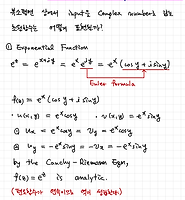 복소평면 상에서 input을 complex number로 받는
초월함수는 어떻게 표현할까?
① Exponential Function
e^z = e^{x+iy} = e^x e^{iy} = e^x (cos y + i sin y)
Euler formula
f(z) = e^x (cos y + i sin y)
· u(x,y) = e^x cos y · v(x,y) = e^x sin y
① u_x = e^x cos y = v_y = e^x cos y
② u_y = -e^x sin y = -v_x = -e^x sin y
by the Cauchy - Riemann Eqn,
f(z) = e^z is analytic.